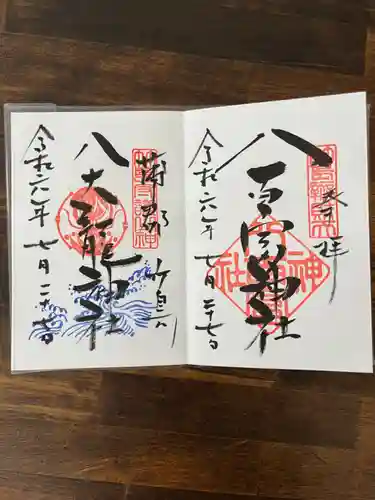 奉拝
八百富神社
令和六年七月二十七日
蒲郡 竹島
八大龍神社
令和六年七月二十七日